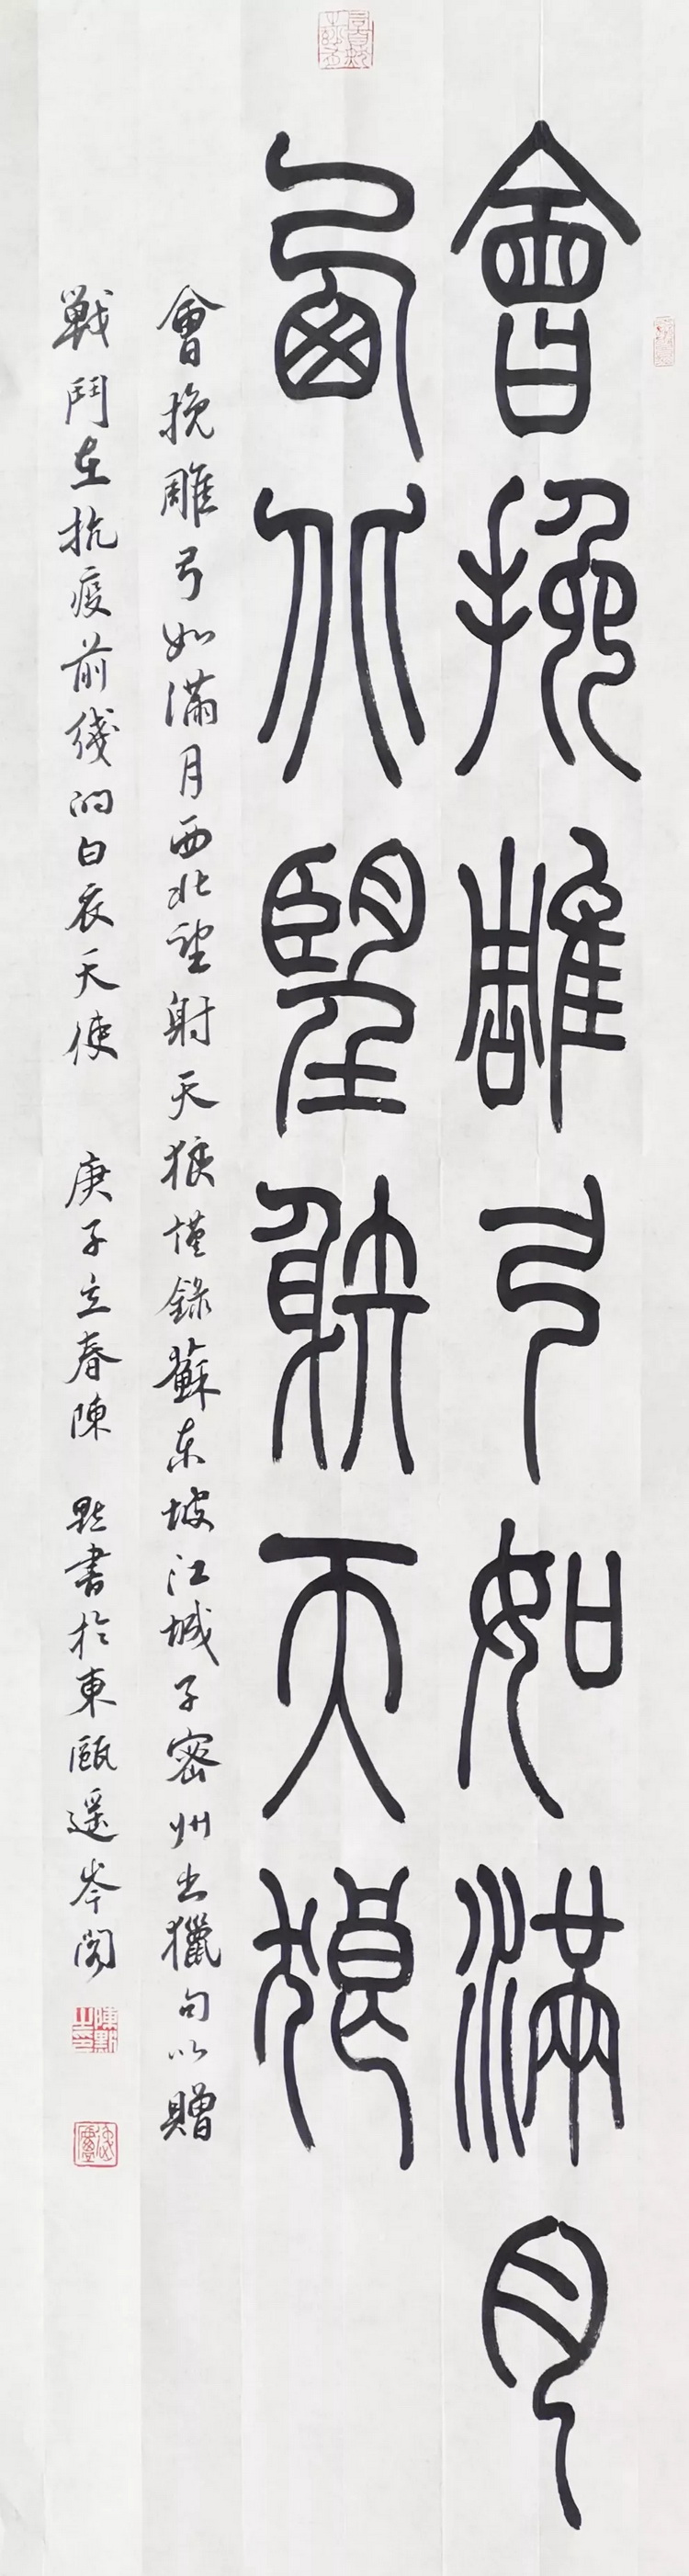 會挽雕弓如滿月
西北望射天狼
會挽雕弓如滿月西北望射天狼謹錄蘇東坡江城子密州出獵句以贈
戰鬥在抗疫前线的白衣天使 庚子立春陳 點書於東甌遥岑閣